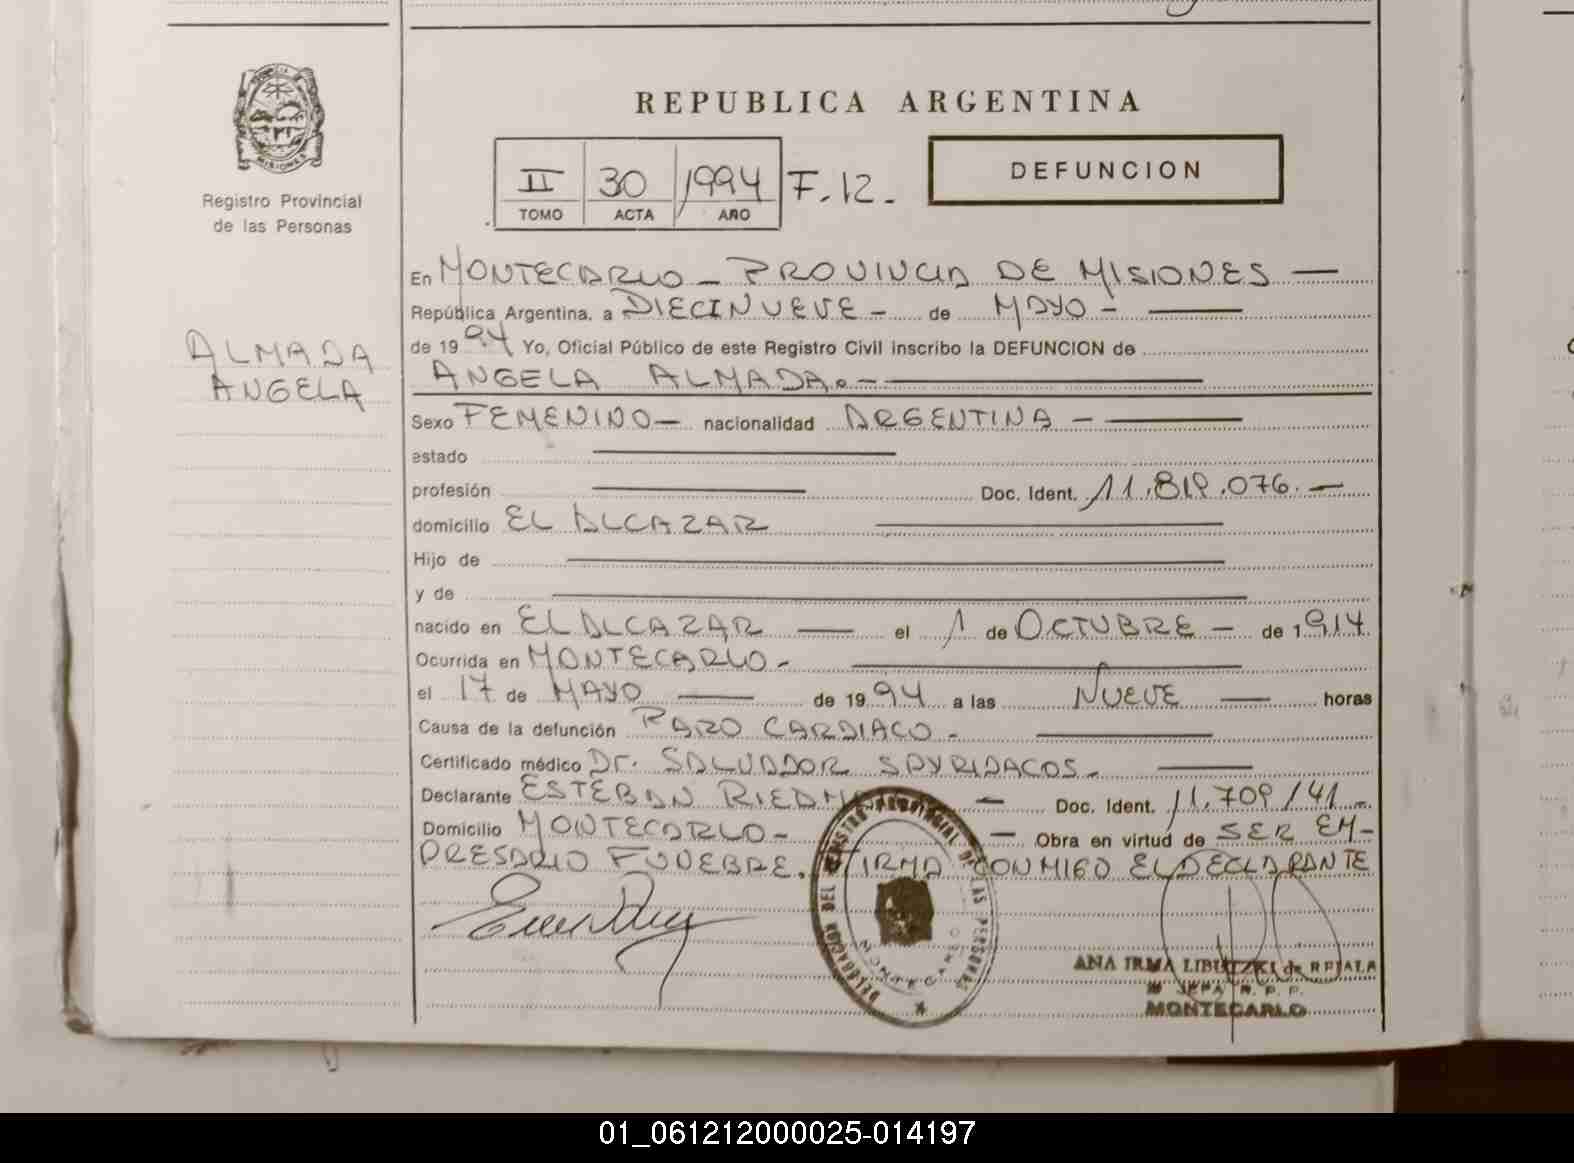 REPUBLICA ARGENTINA
PROVINCIA
MISIONES
Registro Provincial
de las Personas
II 30 1994 F. 12.
TOMO ACTA AÑO
DEFUNCION
ALMADA
ANGELA
En MONTECARLO - PROVINCIA DE MISIONES —
República Argentina, a DIECINUEVE - de MAYO - —
de 1994 Yo, Oficial Público de este Registro Civil inscribo la DEFUNCION de
ANGELA ALMADA. - —
Sexo FEMENINO — nacionalidad ARGENTINA - —
estado —
profesión — Doc. Ident. 11.819.076. —
domicilio EL ALCAZAR —
Hijo de —
y de —
nacido en EL ALCAZAR — el 1 de OCTUBRE - de 1914
Ocurrida en MONTECARLO - —
el 17 de MAYO — de 1994 a las NUEVE — horas
Causa de la defunción PARO CARDIACO - —
Certificado médico Dr. SALVADOR SPYRIDACOS - —
Declarante ESTEBAN — Doc. Ident. 11.709141 -
Domicilio MONTECARLO - — Obra en virtud de SER EM-
PRESARIO FUNEBRE. FIRMA CONMIGO EL DECLARANTE
DELEGACION DEL REGISTRO PROVINCIAL DE LAS PERSONAS
MONTECARLO
ANA IRMA LIBUTZKI de REJALA
JEFA R. P. P.
MONTECARLO
01_061212000025-014197